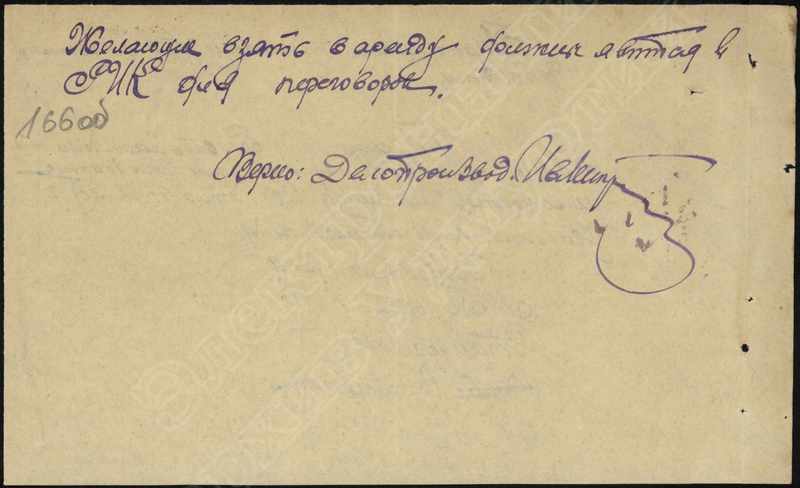 Желающие взять в аренду должны явится в
РИК для переговоров.
166об
Верно: Делопроизвод.